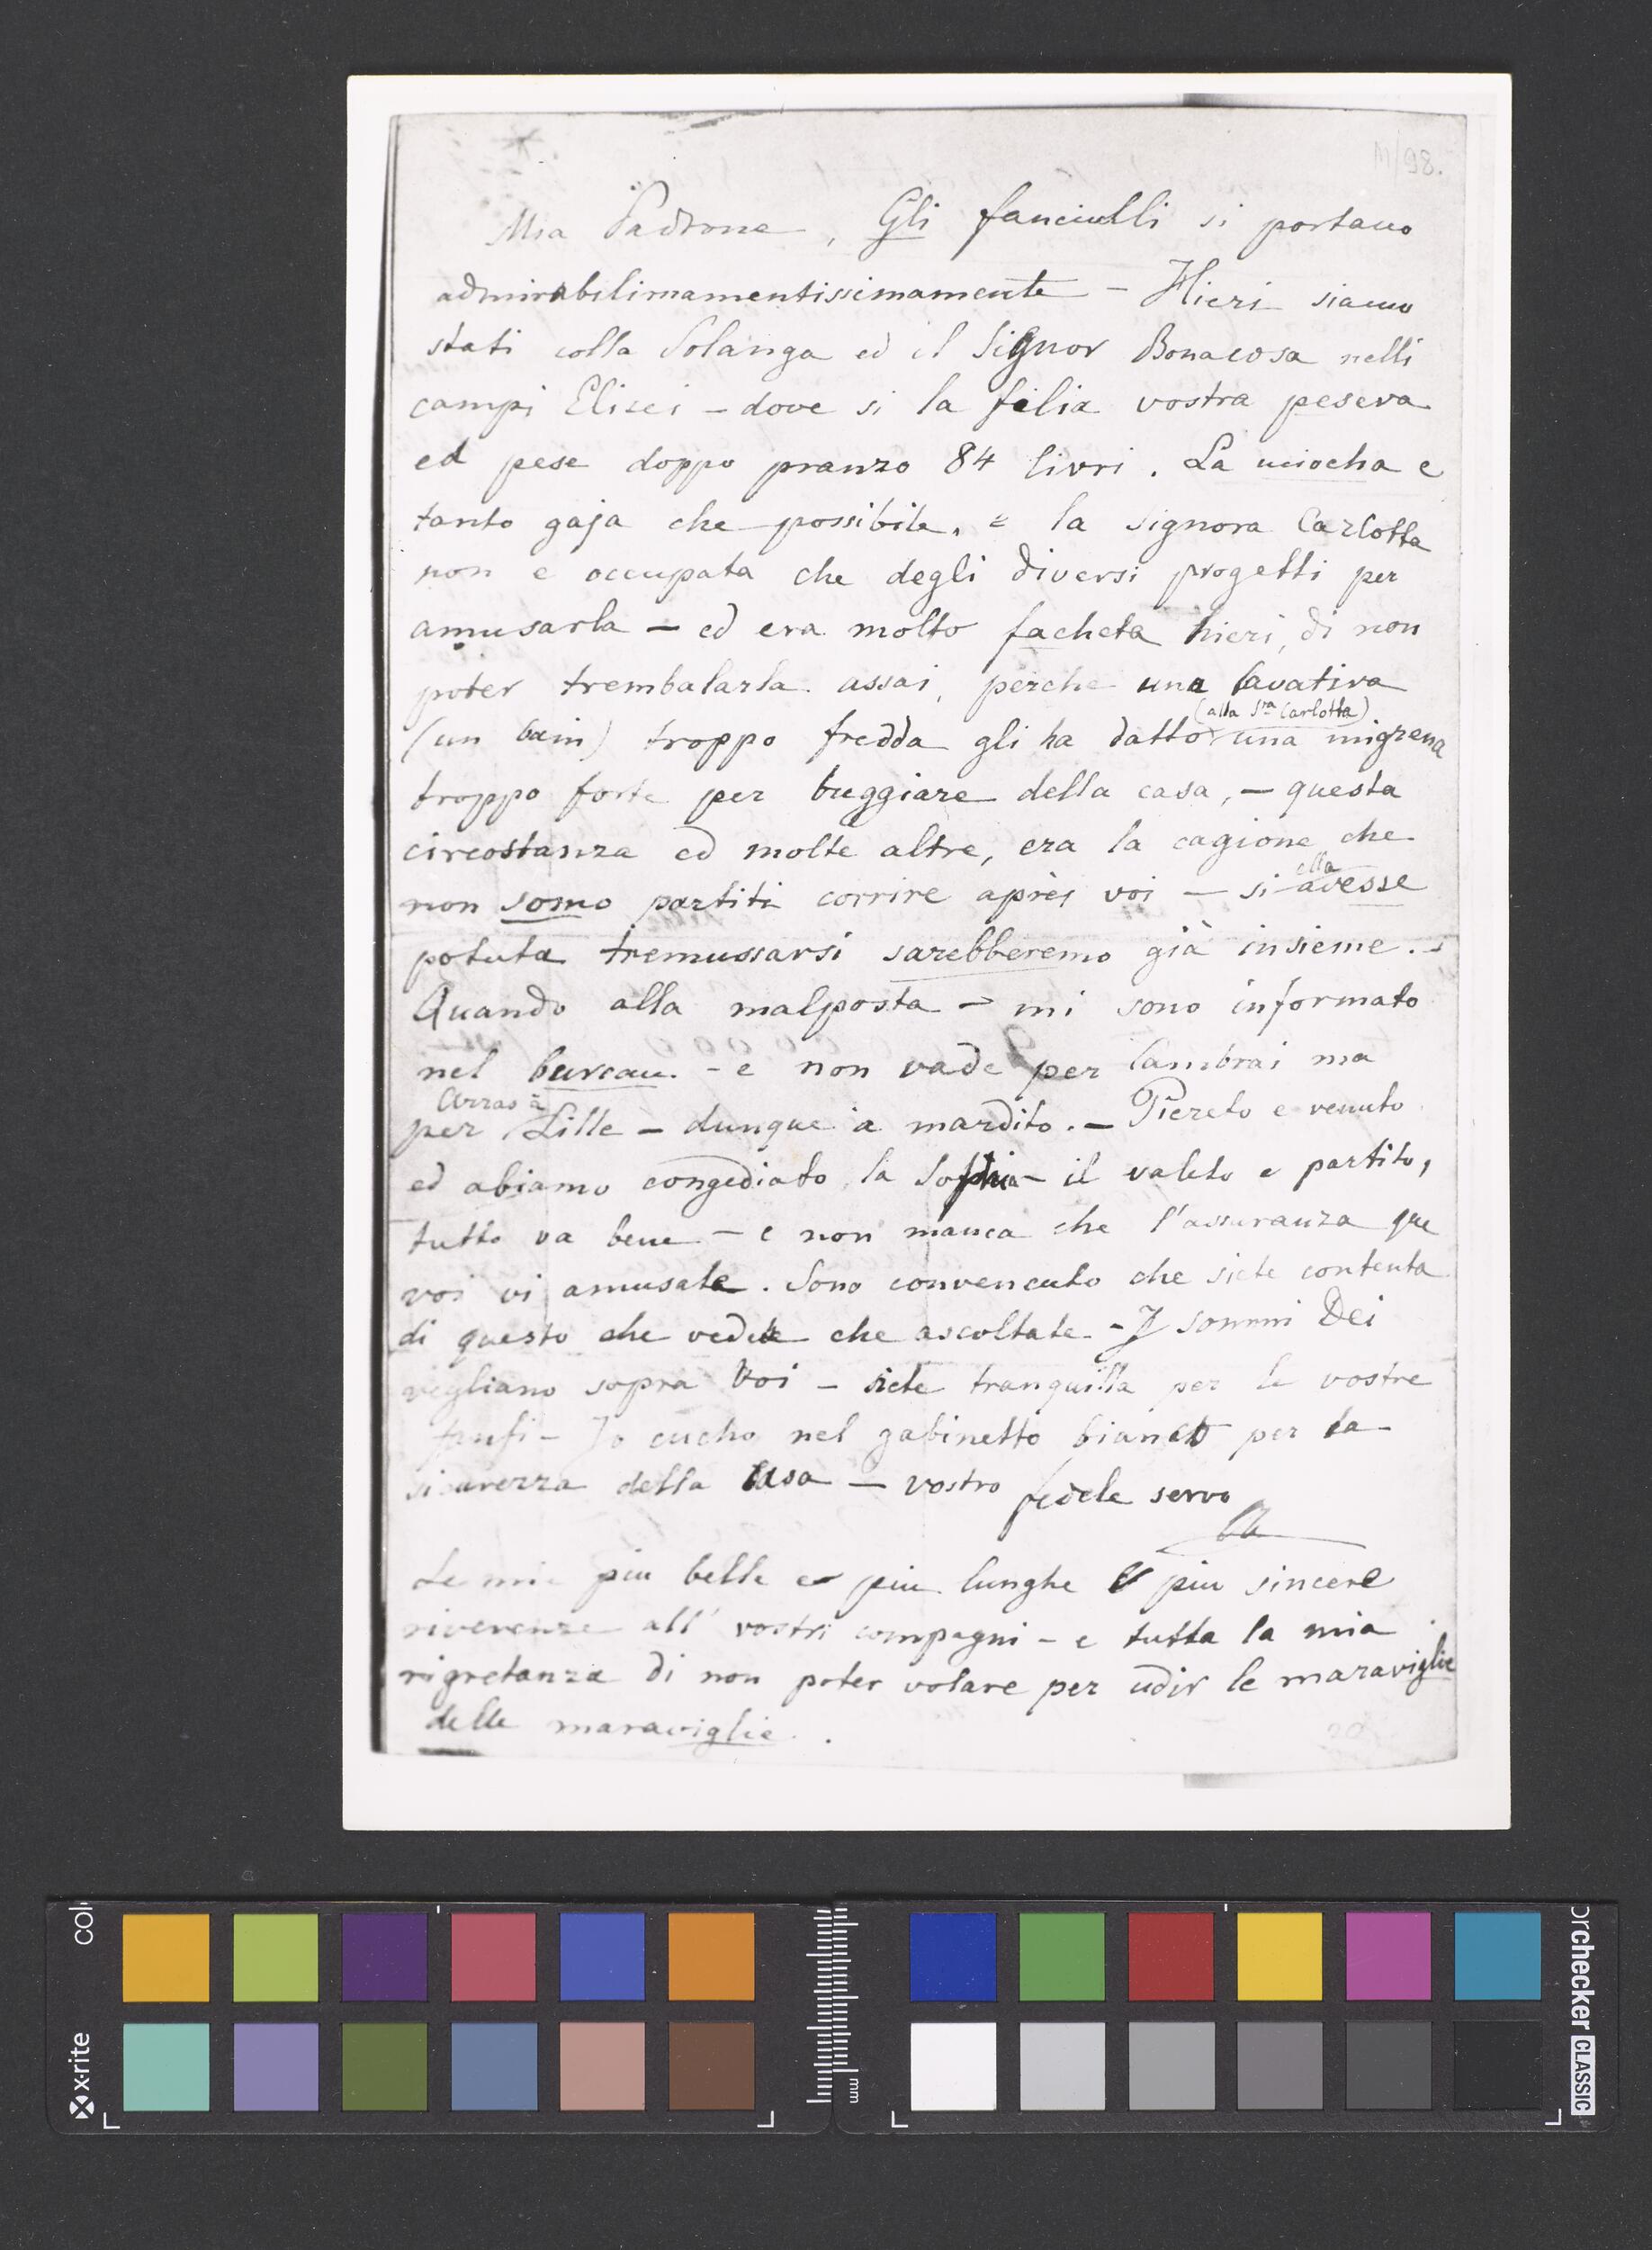 M/98.
Mia Padrone, Gli fanciulli si portano
admirabilimamentissimamente - Hieri siamo
stati colla Solanga ed il Signor Bonacosa nelli
campi Elisei - dove si la filia vostra peseva
ed pese doppo pranzo 84 livri. La miocha e
tanto gaja che possibile. e la signora Carlotta
non e occupata che degli diversi progetti per
amusarla - ed era molto facheta hieri, di non
poter trembalarla assai, perche una lavativa
(alla Sra Carlotta)
(un bain) troppo fredda gli ha datto una migrena
troppo forte per buggiare della casa, - questa
circostanza ed molte altre, era la cagione che
ella
non somo partiti corrire après voi - si avesse
potuta tremussarsi sarebberemo già insieme. -
Quando alla malposta - mi sono informato
nel bureau. - e non vade per Cambrai ma
Arras à
per Lille - dunque a mardito. - Piereto e venuto
ed abiamo congediato la Sophia - il valeto e partito,
tutto va bene - e non manca che l'assuranza que
voi vi amusate. Sono convencuto che siete contenta
di questo che vedete che ascoltate - I sommi Dei
vegliano sopra Voi - siete tranquilla per le vostre
- Io cucho nel gabinetto bianco per la
sicurezza della casa - vostro fedele servo
Le mie piu belle e piu lunghe e piu sincere
riverenze all' vostri compagni - e tutta la mia
rigretanza di non poter volare per udir le maraviglie
delle maraviglie.
x-rite
colo
mm
orchecker CLASSIC